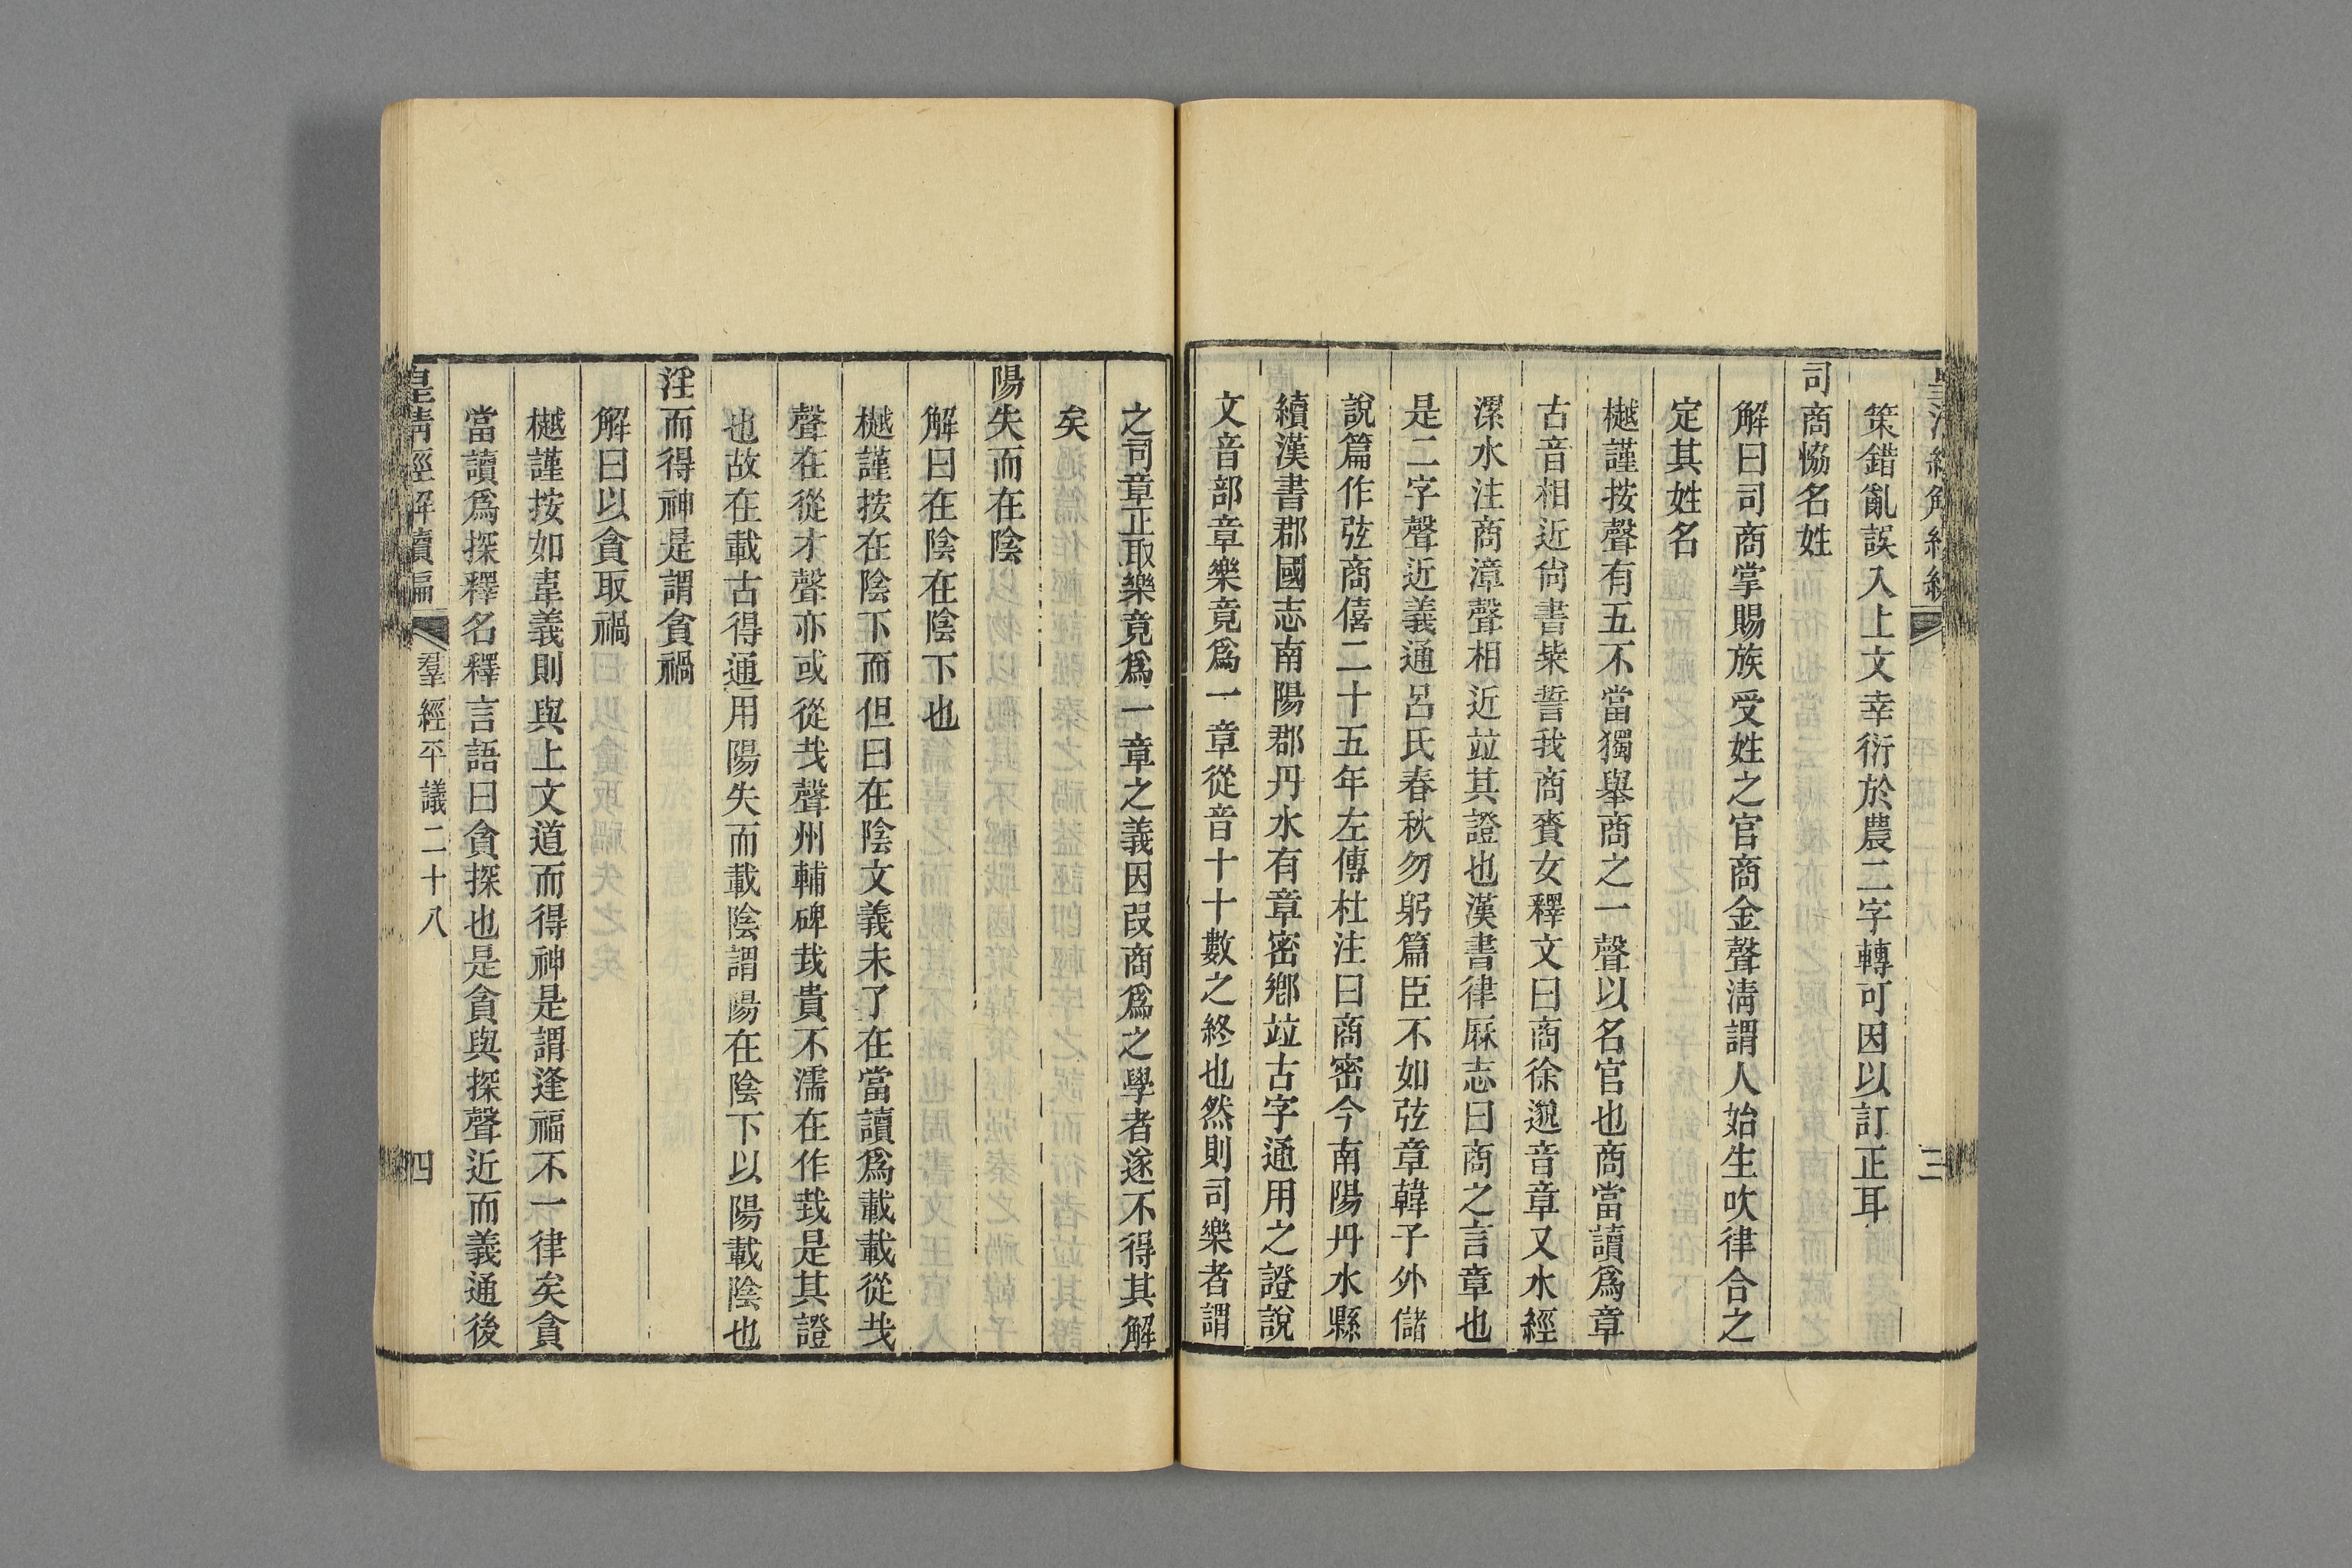 策錯亂誤入上文幸衍於農二字轉可因以訂正耳
司商恊名姓
解曰司商掌賜族受姓之官商金聲淸謂人始生吹律合之
定其姓名
樾謹按聲有五不當獨舉商之一聲以名官也商當讀爲章
古音相近尙書柴誓我商賚女釋文曰商徐邈音章又水經
漯水注商漳聲相近竝其證也漢書律厤志曰商之言章也
是二字聲近義通呂氏春秋勿躬篇臣不如弦章韓子外儲
說篇作弦商僖二十五年左傳杜注曰商密今南陽丹水縣
續漢書郡國志南陽郡丹水有章密鄕竝古字通用之證說
文音部章樂竟爲一章從音十十數之終也然則司樂者謂
之司章正取樂竟爲一章之義因叚商爲之學者遂不得其解
矣
陽失而在陰
解曰在陰在陰下也
樾謹按在陰下而但曰在陰文義未了在當讀爲載載從𢦏
聲在從才聲亦或從𢦏聲州輔碑㘽貴不濡在作㘽是其證
也故在載古得通用陽失而載陰謂陽在陰下以陽載陰也
淫而得神是謂貪禍
解曰以貪取禍
樾謹按如韋義則與上文道而得神是謂逢福不一律矣貪
當讀爲探釋名釋言語曰貪探也是貪與探聲近而義通後
皇淸經解續編
羣經平議二十八
四